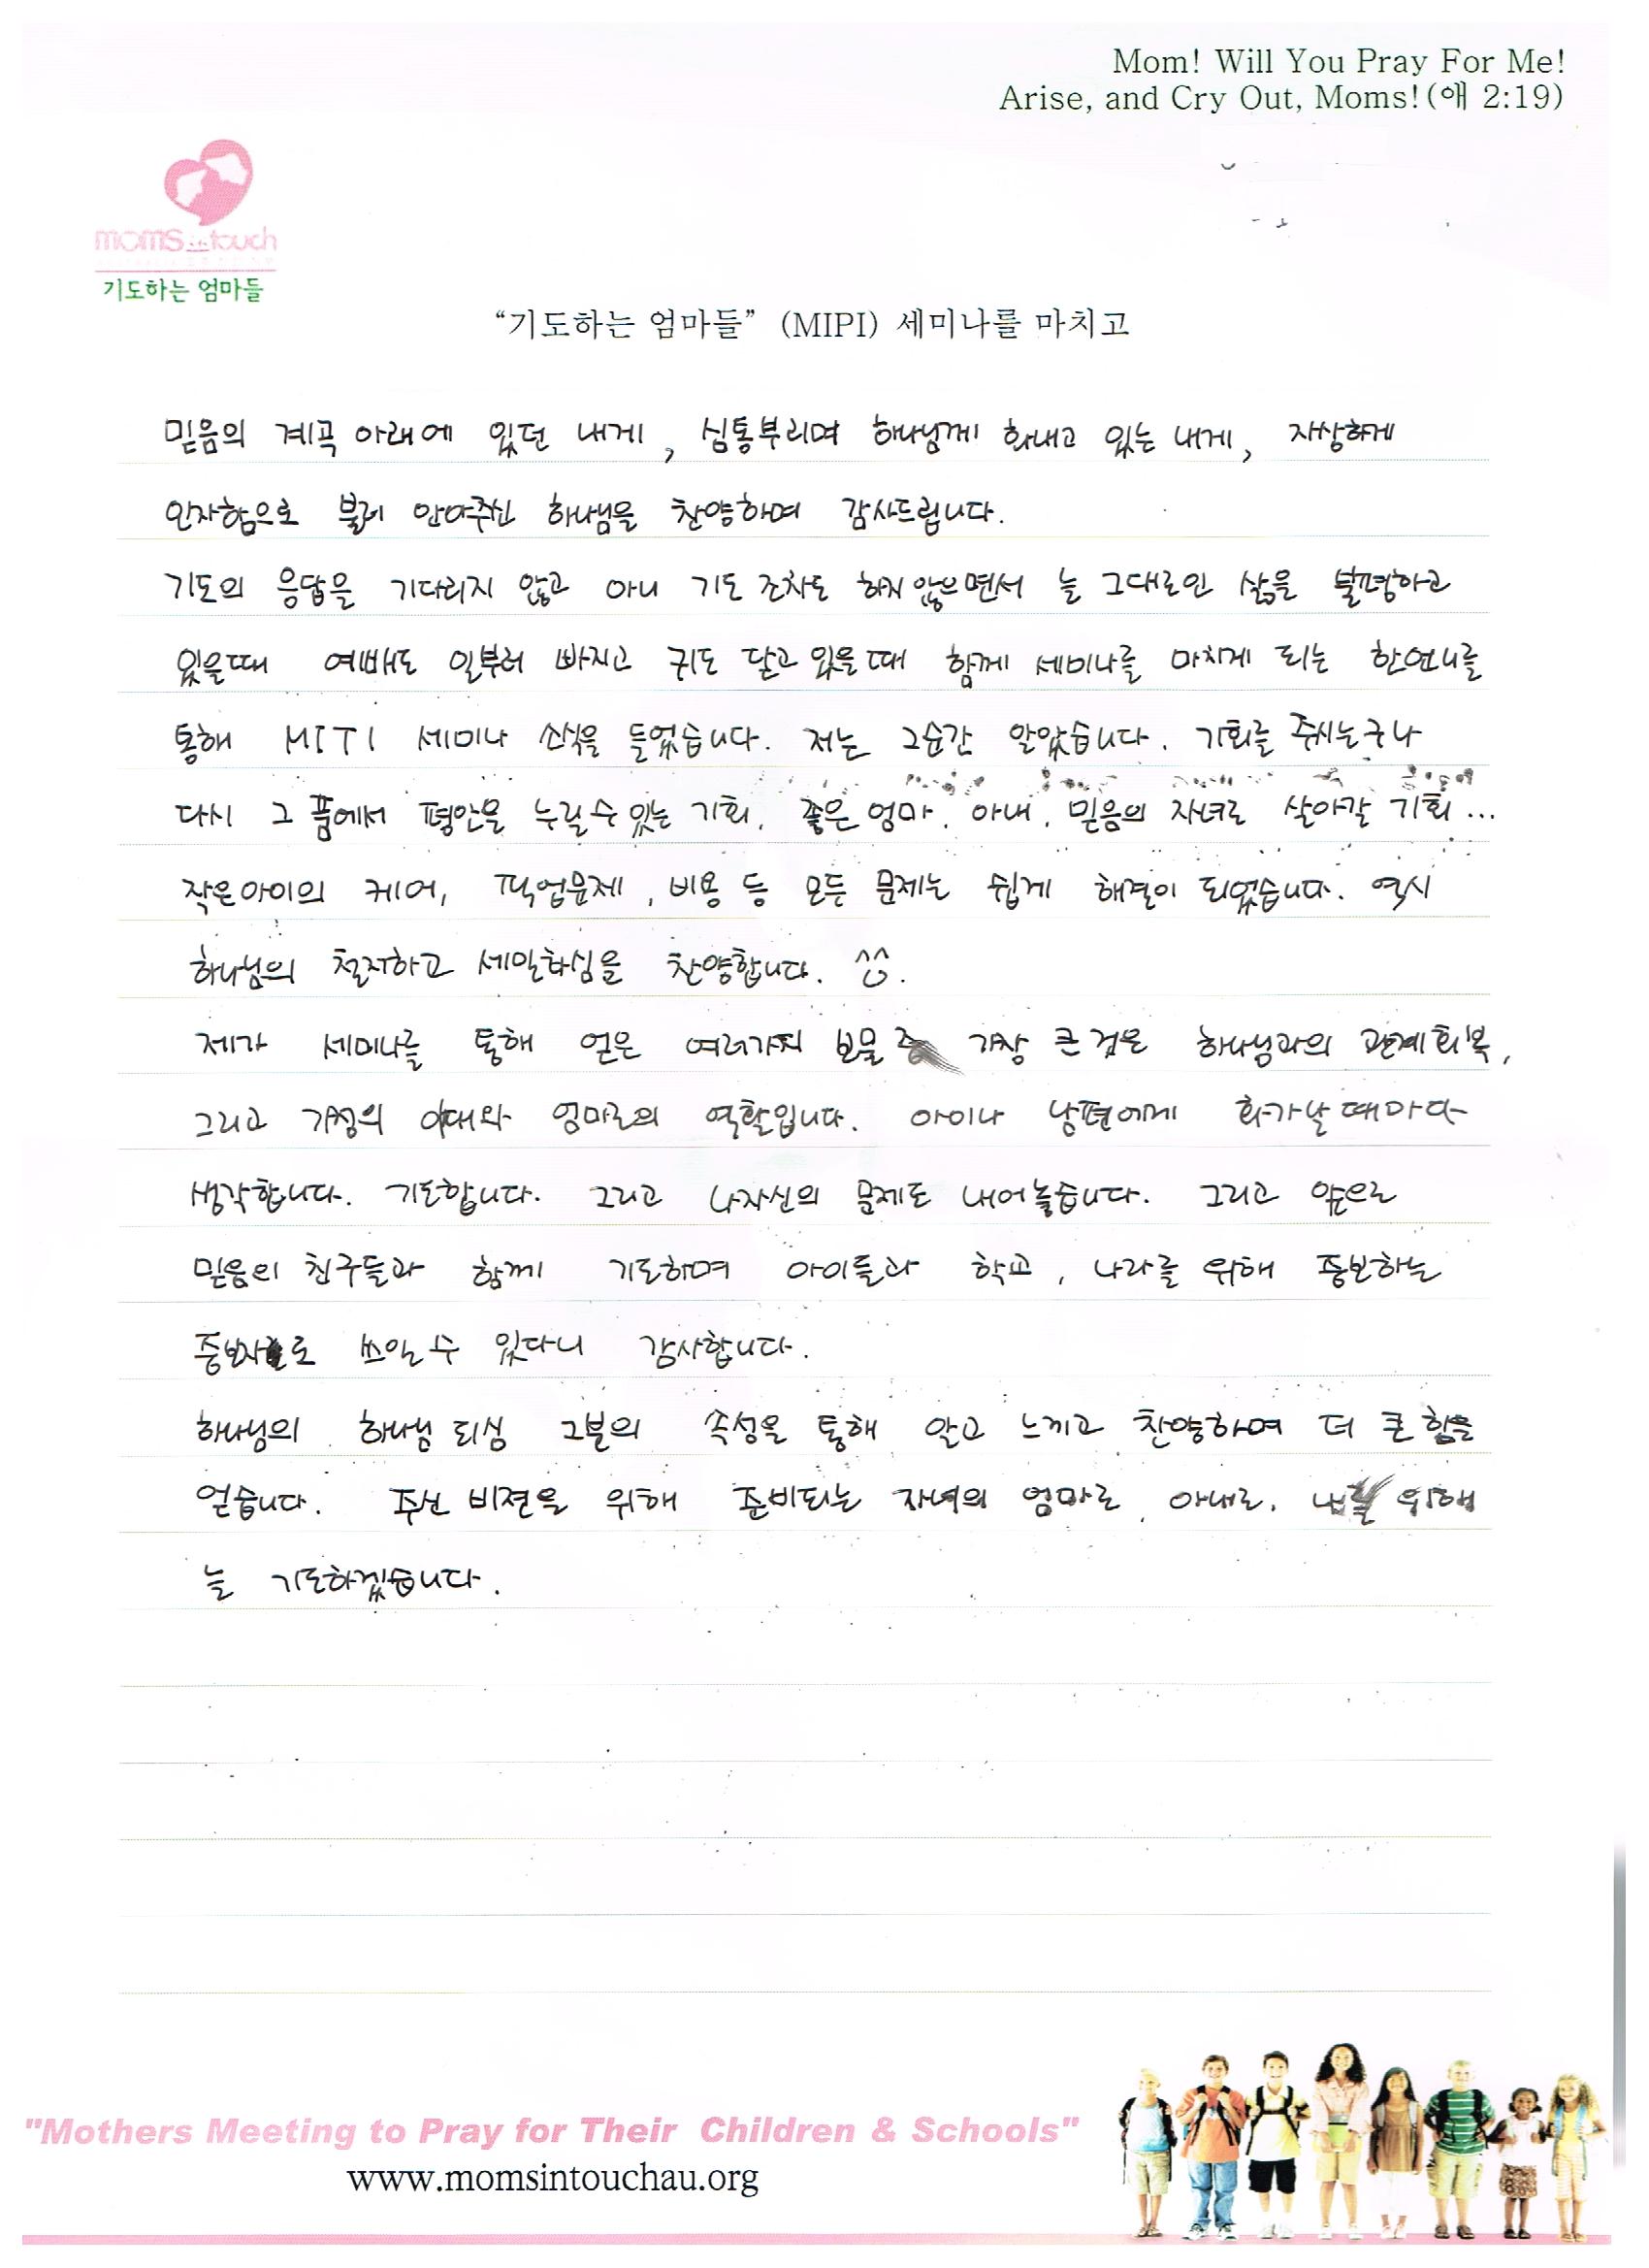 Mom! Will You Pray For Me!
Arise, and Cry Out, Moms!(애 2:19)
moms in touch
기도하는 엄마들
“기도하는 엄마들” (MIPI) 세미나를 마치고
믿음의 계곡 아래에 있던 내게, 심통부리며 하나님께 화내고 있는 내게, 자상하게
인자함으로 불러 안아주신 하나님을 찬양하며 감사드립니다.
기도의 응답을 기다리지 않고 아니 기도 조차도 하지 않으면서 늘 그대로인 삶을 불평하고
있을때 예배도 일부러 빠지고 귀도 닫고 있을때 함께 세미나를 마치게 되는 한언니를
통해 MITI 세미나 소식을 들었습니다. 저는 그순간 알았습니다. 기회를 주시는구나
다시 그 품에서 평안을 누릴수 있는 기회. 좋은 엄마. 아내. 믿음의 자녀로 살아갈 기회...
작은아이의 케어, 픽업문제, 비용 등 모든 문제는 쉽게 해결이 되었습니다. 역시
하나님의 철저하고 세밀하심을 찬양합니다. ^^.
제가 세미나를 통해 얻은 여러가지 보물 중 가장 큰 것은 하나님과의 관계회복,
그리고 가정의 아내와 엄마로의 역할입니다. 아이나 남편에게 화가날 때마다
생각합니다. 기도합니다. 그리고 나자신의 문제도 내어놓습니다. 그리고 앞으로
믿음의 친구들과 함께 기도하며 아이들과 학교, 나라를 위해 중보하는
중보자로 쓰일 수 있다니 감사합니다.
하나님의 하나님 되심 그분의 속성을 통해 알고 느끼고 찬양하며 더 큰 힘을
얻습니다. 주신 비젼을 위해 준비되는 자녀의 엄마로, 아내로, 위해
늘 기도하겠습니다.
"Mothers Meeting to Pray for Their Children & Schools"
www.momsintouchau.org